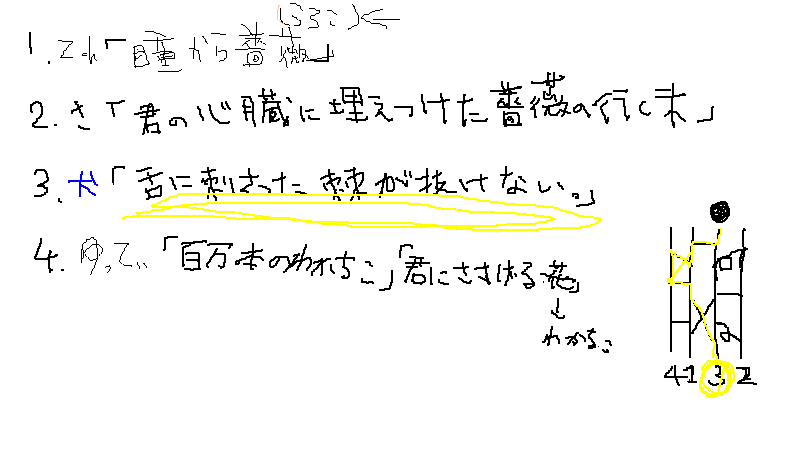 (うろこ)←
1. それ「瞳から薔薇」
2. さ「君の心臓に埋えつけた薔薇の行く末」
3. 犬「舌に刺さった棘が抜けない。」
4. ゆってぃ「百万本のわかちこ」「君にささげる花」
↓
わかちこ
4 1 3 2